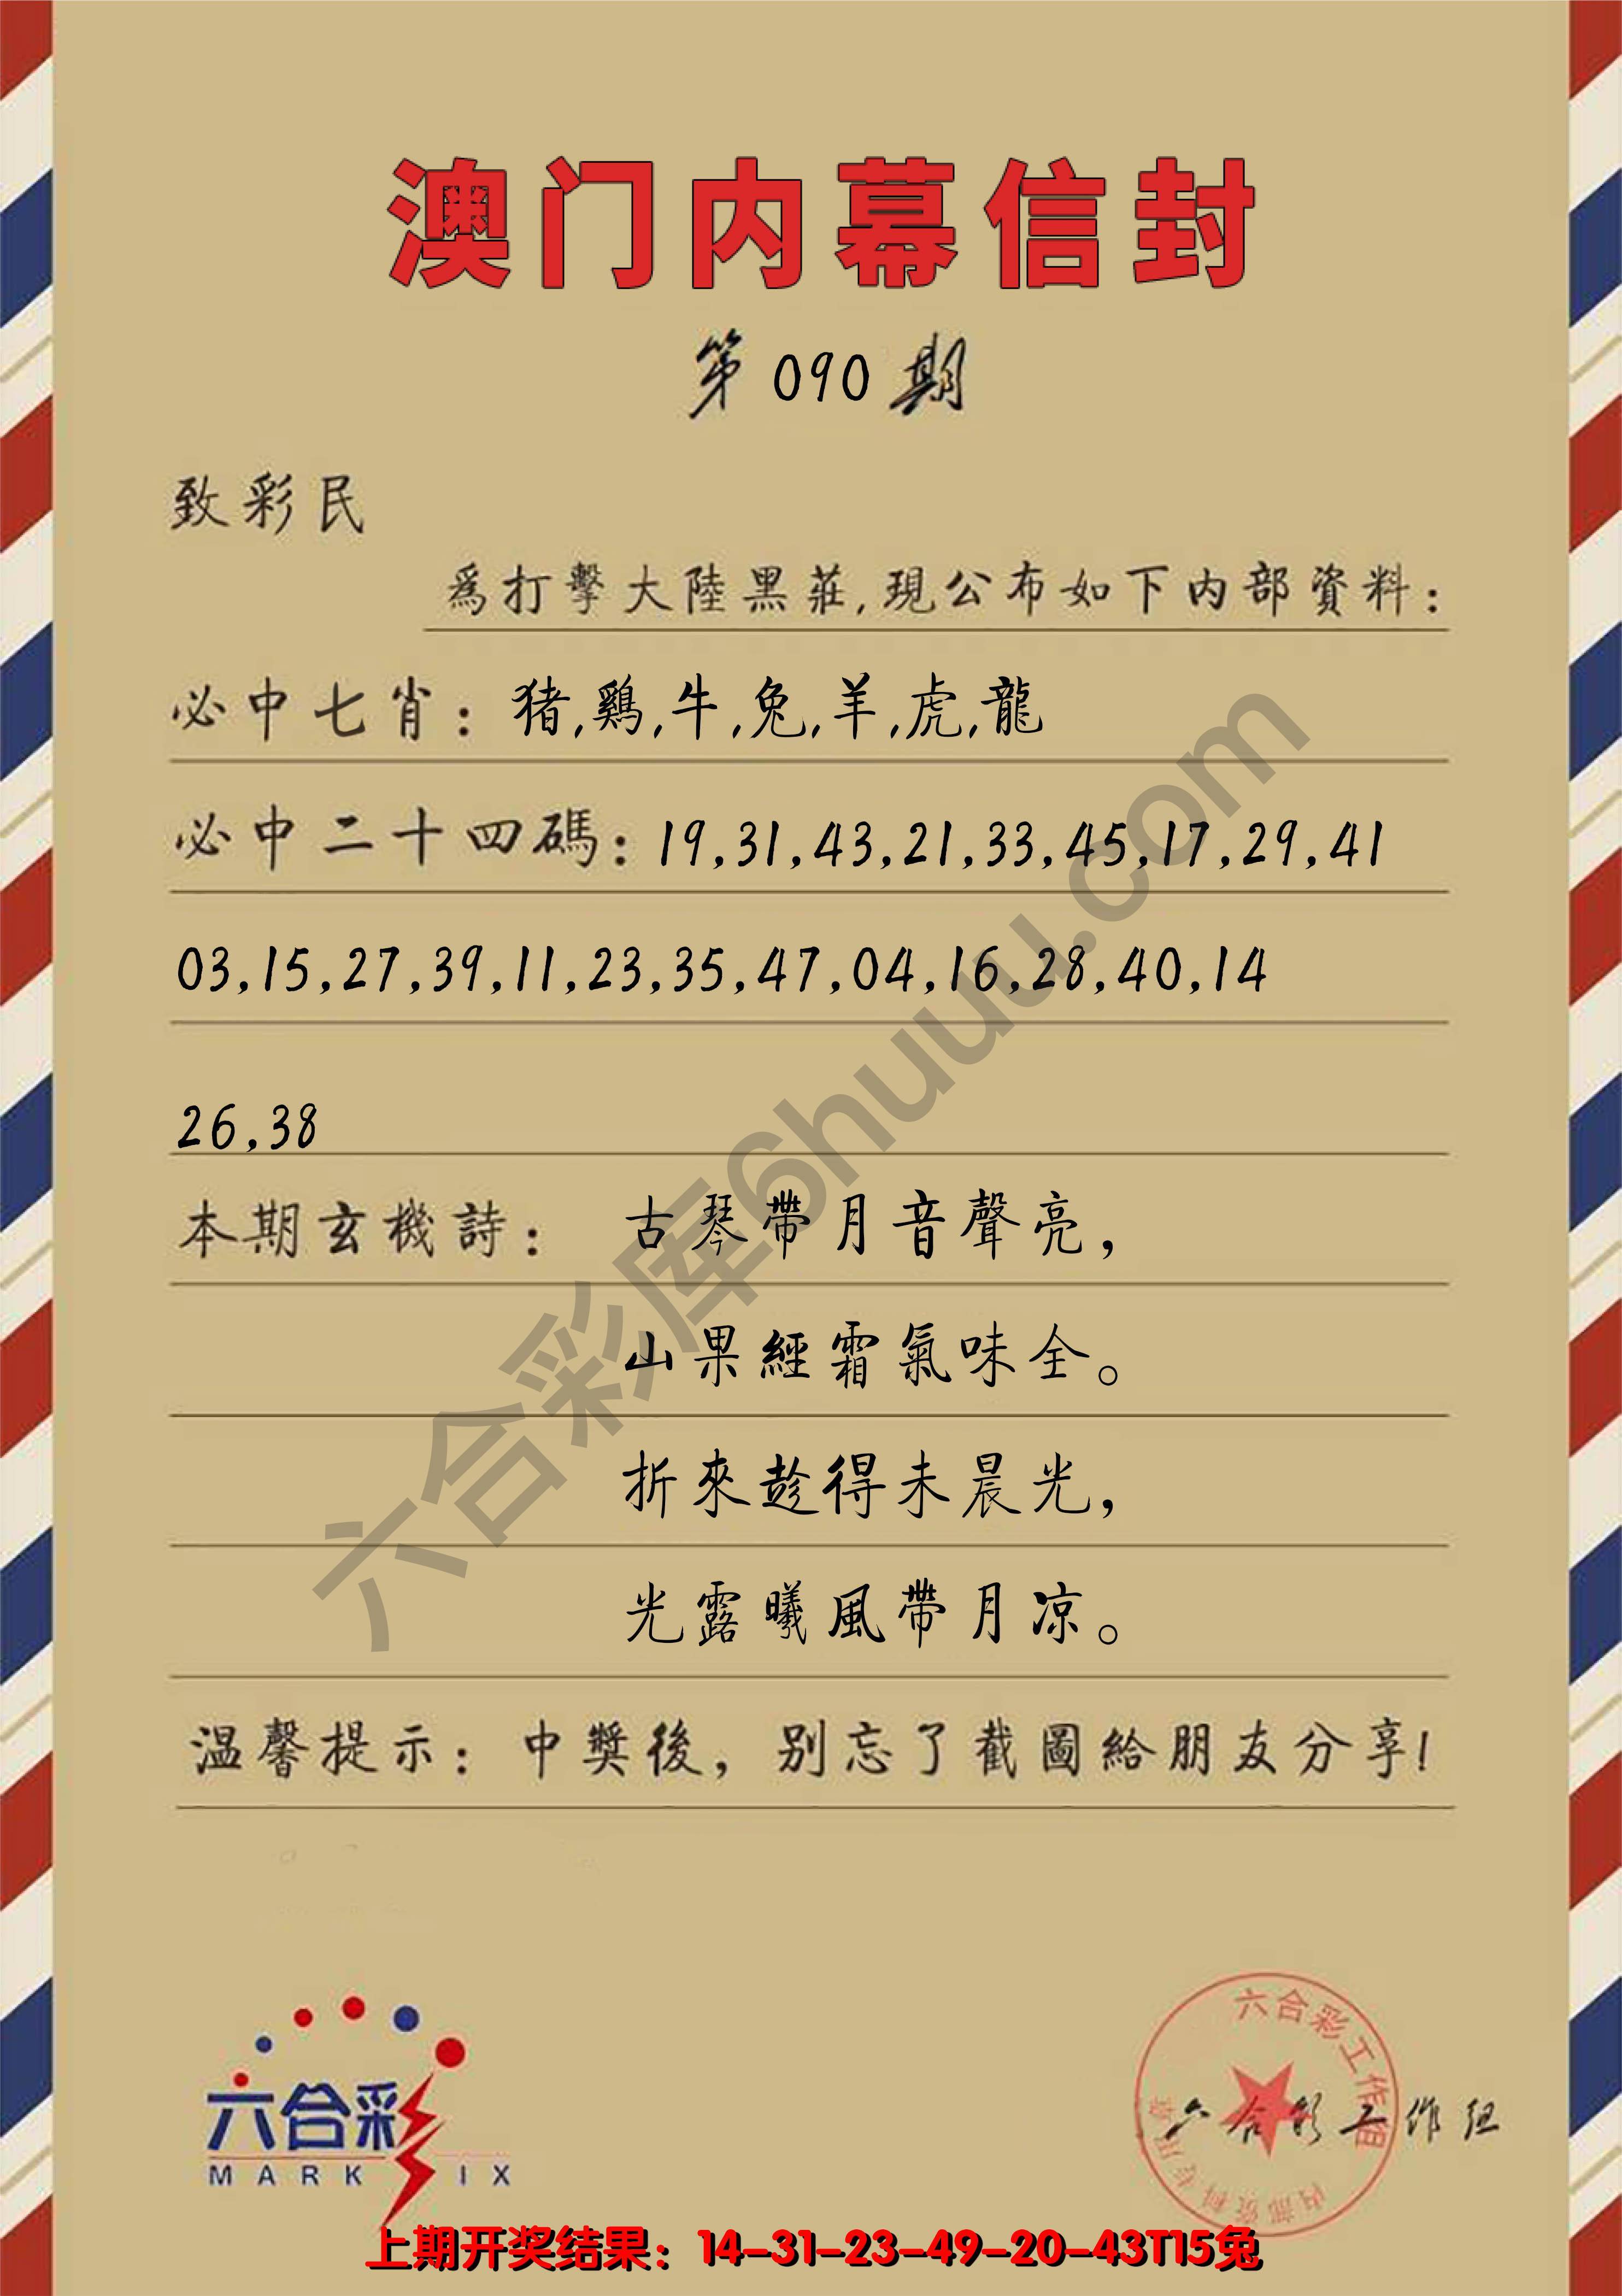 澳门内幕信封
第090期
致彩民
為打擊大陸黑莊,現公布如下内部資料:
必中七肖:猪,鷄,牛,兔,羊,虎,龍
必中二十四碼:19,31,43,21,33,45,17,29,41
03,15,27,39,11,23,35,47,04,16,28,40,14
26,38
本期玄機詩: 古琴帶月音聲亮,
山果經霜氣味全。
折來趁得未晨光,
光露曦風帶月凉。
温馨提示:中獎後,别忘了截圖給朋友分享!
六合彩库6huuu.com
六合彩
MARK IX
六合彩工作组
内部资料专用章
六合彩工作组
上期开奖结果:14-31-23-49-20-43T15兔